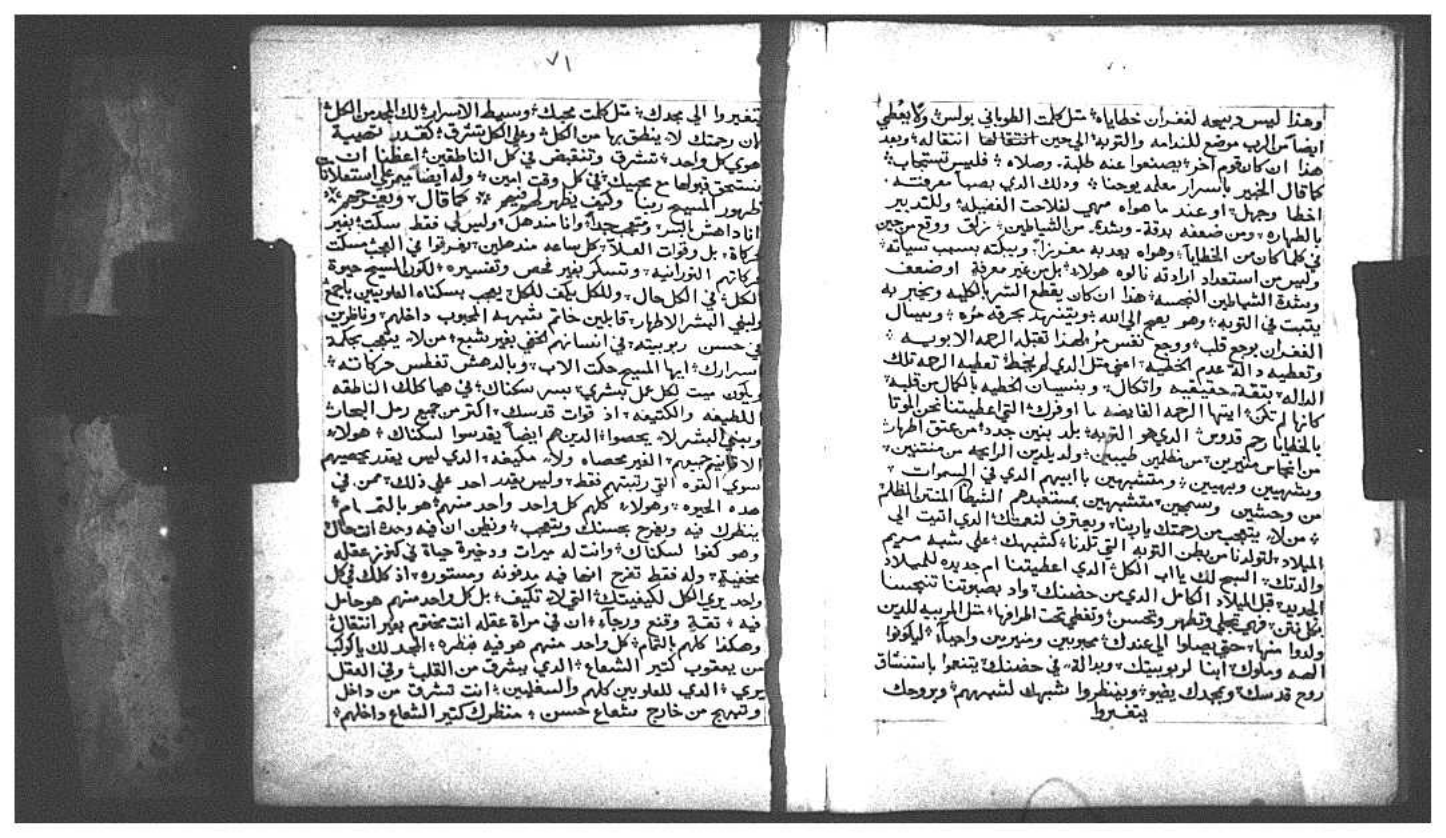 ٧٠
وهذا ليس دبيحه لغفران خطاياه مثل كلمت الطوباني بولس ولا يعطي
ايضاً من الرب موضع للندامه والتوبه الي حين انتقاله وبعد
هذا ان كان قوم اخر يصنعوا عنه طلبة وصلاه فليس تستجاب
كما قال الخبير بأسرار معلمه يوحنا ودلك الدي بصبا معرفته
اخطا وجهل او عند ما هواه مهمي لفلاحت الفضيله وللتدبير
بالطهاره ومن ضعفه بدقة وبشدة من الشياطين زلق ووقع من حين
في كلما كان من الخطايا وهواه يعدبه وببكته بسبب سياته
وليس من استعداد ارادته نالوه هولاء بل من غير معرفة او ضعف
وبشدة الشياطين النجسه هذا ان كان يقطع الشر بالكليه ويخبر به
يتبت في التوبه وهو يصيح الي الله ويتنهد بحرقه مره ويسال
الغفران بوجع قلب ووجع نفس مر لهذا تقبله الرحمه الابويه
وتعطيه دالة عدم الخطيه اعني مثل الدي لم يخط تعطيه الرحمه تلك
الداله بتقة حقيقيه واتكال وبنسيان الخطيه بالكمال من قلبه
كانها لم تكن ايتها الرحمه الفايضه ما اوفرك التي اعطيتنا نحن الموتا
بالخطايا رحم قدوس الدي هو التوبه يلد بنين جدد من عتق اطهار
من انجاس منيرين من مظلمين طيبين ولد يلدين الرايحه من منتنين
وبشهيين وبهيين ومتشبهين بابيهم الدي في السموات
من وحشين وسمجين متشبهين بمستعبدهم الشيطان المنتن المظلم
من لا يتعجب من رحمتك ياربنا ويعترف لنعمتك الدي اتيت الي
الميلاد لتولدنا من بطن التوبه التي تلدنا كشبهك علي شبه مريم
والدتك السبح لك يا اب الكل الدي اعطيتنا ام جديده للميلاد
الجديد قبل الميلاد الكامل الدي من حضنك واد بصبوتنا تنجسنا
بكل نتن فهي تجلي وتطهر وتحسن وتغطي تحت اطرافها مثل المربيه للدين
ولدوا منها حتي يصلوا الي عندك محبوبين ومنيرين واحيا ليكونوا
الهه وملوك ابنا لربوبيتك وبداله في حضنك يتنعموا باستنشاق
روح قدسك وبمجدك يضيو وينظروا شبهك لشبههم وبروحك
يتغيروا
٧١
يتغيروا الي مجدك مثل كلمت محبك وسيط الاسرار لك المجد من الكل
لان رحمتك لا ينطق بها من الكل وعلي الكل تشرق كقدر نصيبة
هوي كل واحد تشرق وتنقبض في كل الناطقين اعطنا ان
نستحق قبولها مع محبيك في كل وقت امين وله ايضاً ميمر علي استعلانات
ظهور المسيح ربنا وكيف يظهر لهم كما قال
انا داهش بالسر ومتعجب جداً وانا مندهل وليس لي فقط سكت بغير
حركاة بل وقوات العلا كل ساعه مندهلين يغرقوا في العجب مسكت
حركاتهم النورانيه وتسكر بغير فحص وتفسيره لكون المسيح حيوة
الكل في الكل حال وللكل بكف للكل يعجب بسكناه العلويين باجمع
ولبني البشر الاطهار قابلين خاتم شبهه المحبوب داخلهم وناظرين
في حسن ربوبيته في انسانهم الخفي بغير شبع من لا يتعجب بحكمة
اسرارك ايها المسيح حكمت الاب وبالدهش تغطس حركاته
ويكون ميت لكل عمل بشري بسر سكناك في هياكلك الناطقه
اللطيفه والكتيفه اذ قوات قدسك اكتر من جميع رمل البحار
وبيني البشر لا يحصوا الدين هم ايضاً يقدسوا لسكناك هولاء
الاقانيم جميعهم الغير محصاه ولا مكيفه الدي ليس يقدر يحصيهم
سوي القوه التي رتبتهم فقط وليس يقدر احد علي ذلك ممن في
هده الحيوه وهولاء كلهم كل واحد واحد منهم هو بالتمام
ينظرك فيه ويفرح بحسنك ويتعجب ويظن ان فيه وحده انت حال
وهو كفوا لسكناك وانت له ميرات ودخيرة حياة في كنوز عقله
مخفية وله فقط تفرح انها فيه مدفونه ومستوره اذ كلك في كل
واحد يري الكل لكيفيتك التي لا تكيف بل كل واحد منهم هو حامل
فيه تقة وقنع ورجاء ان في مراة عقله انت مختوم بغير انتقال
وهكدا كلهم بالتمام كل واحد منهم هو فيه ينظره المجد لك يا كوكب
من يعقوب كتير الشعاع الدي يشرق من القلب وفي العقل
يري الدي للعلويين كلهم والسفليين انت تشرق من داخل
وتبهج من خارج شعاع حسن منظرك كتير الشعاع داخلهم